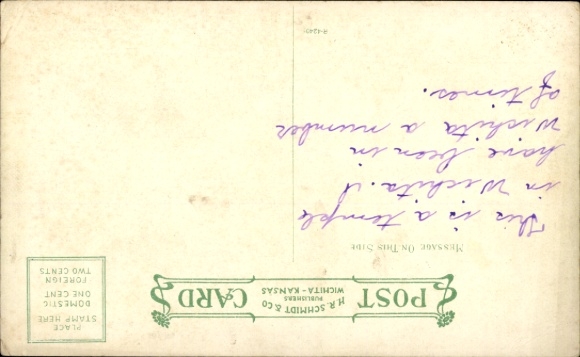 POST CARD
H.R. SCHMIDT & CO
PUBLISHERS
WICHITA - KANSAS
PLACE
STAMP HERE
DOMESTIC
ONE CENT
FOREIGN
TWO CENTS
MESSAGE ON THIS SIDE
This is a temple
in Wichita. I
have been in
Wichita a number
of times.